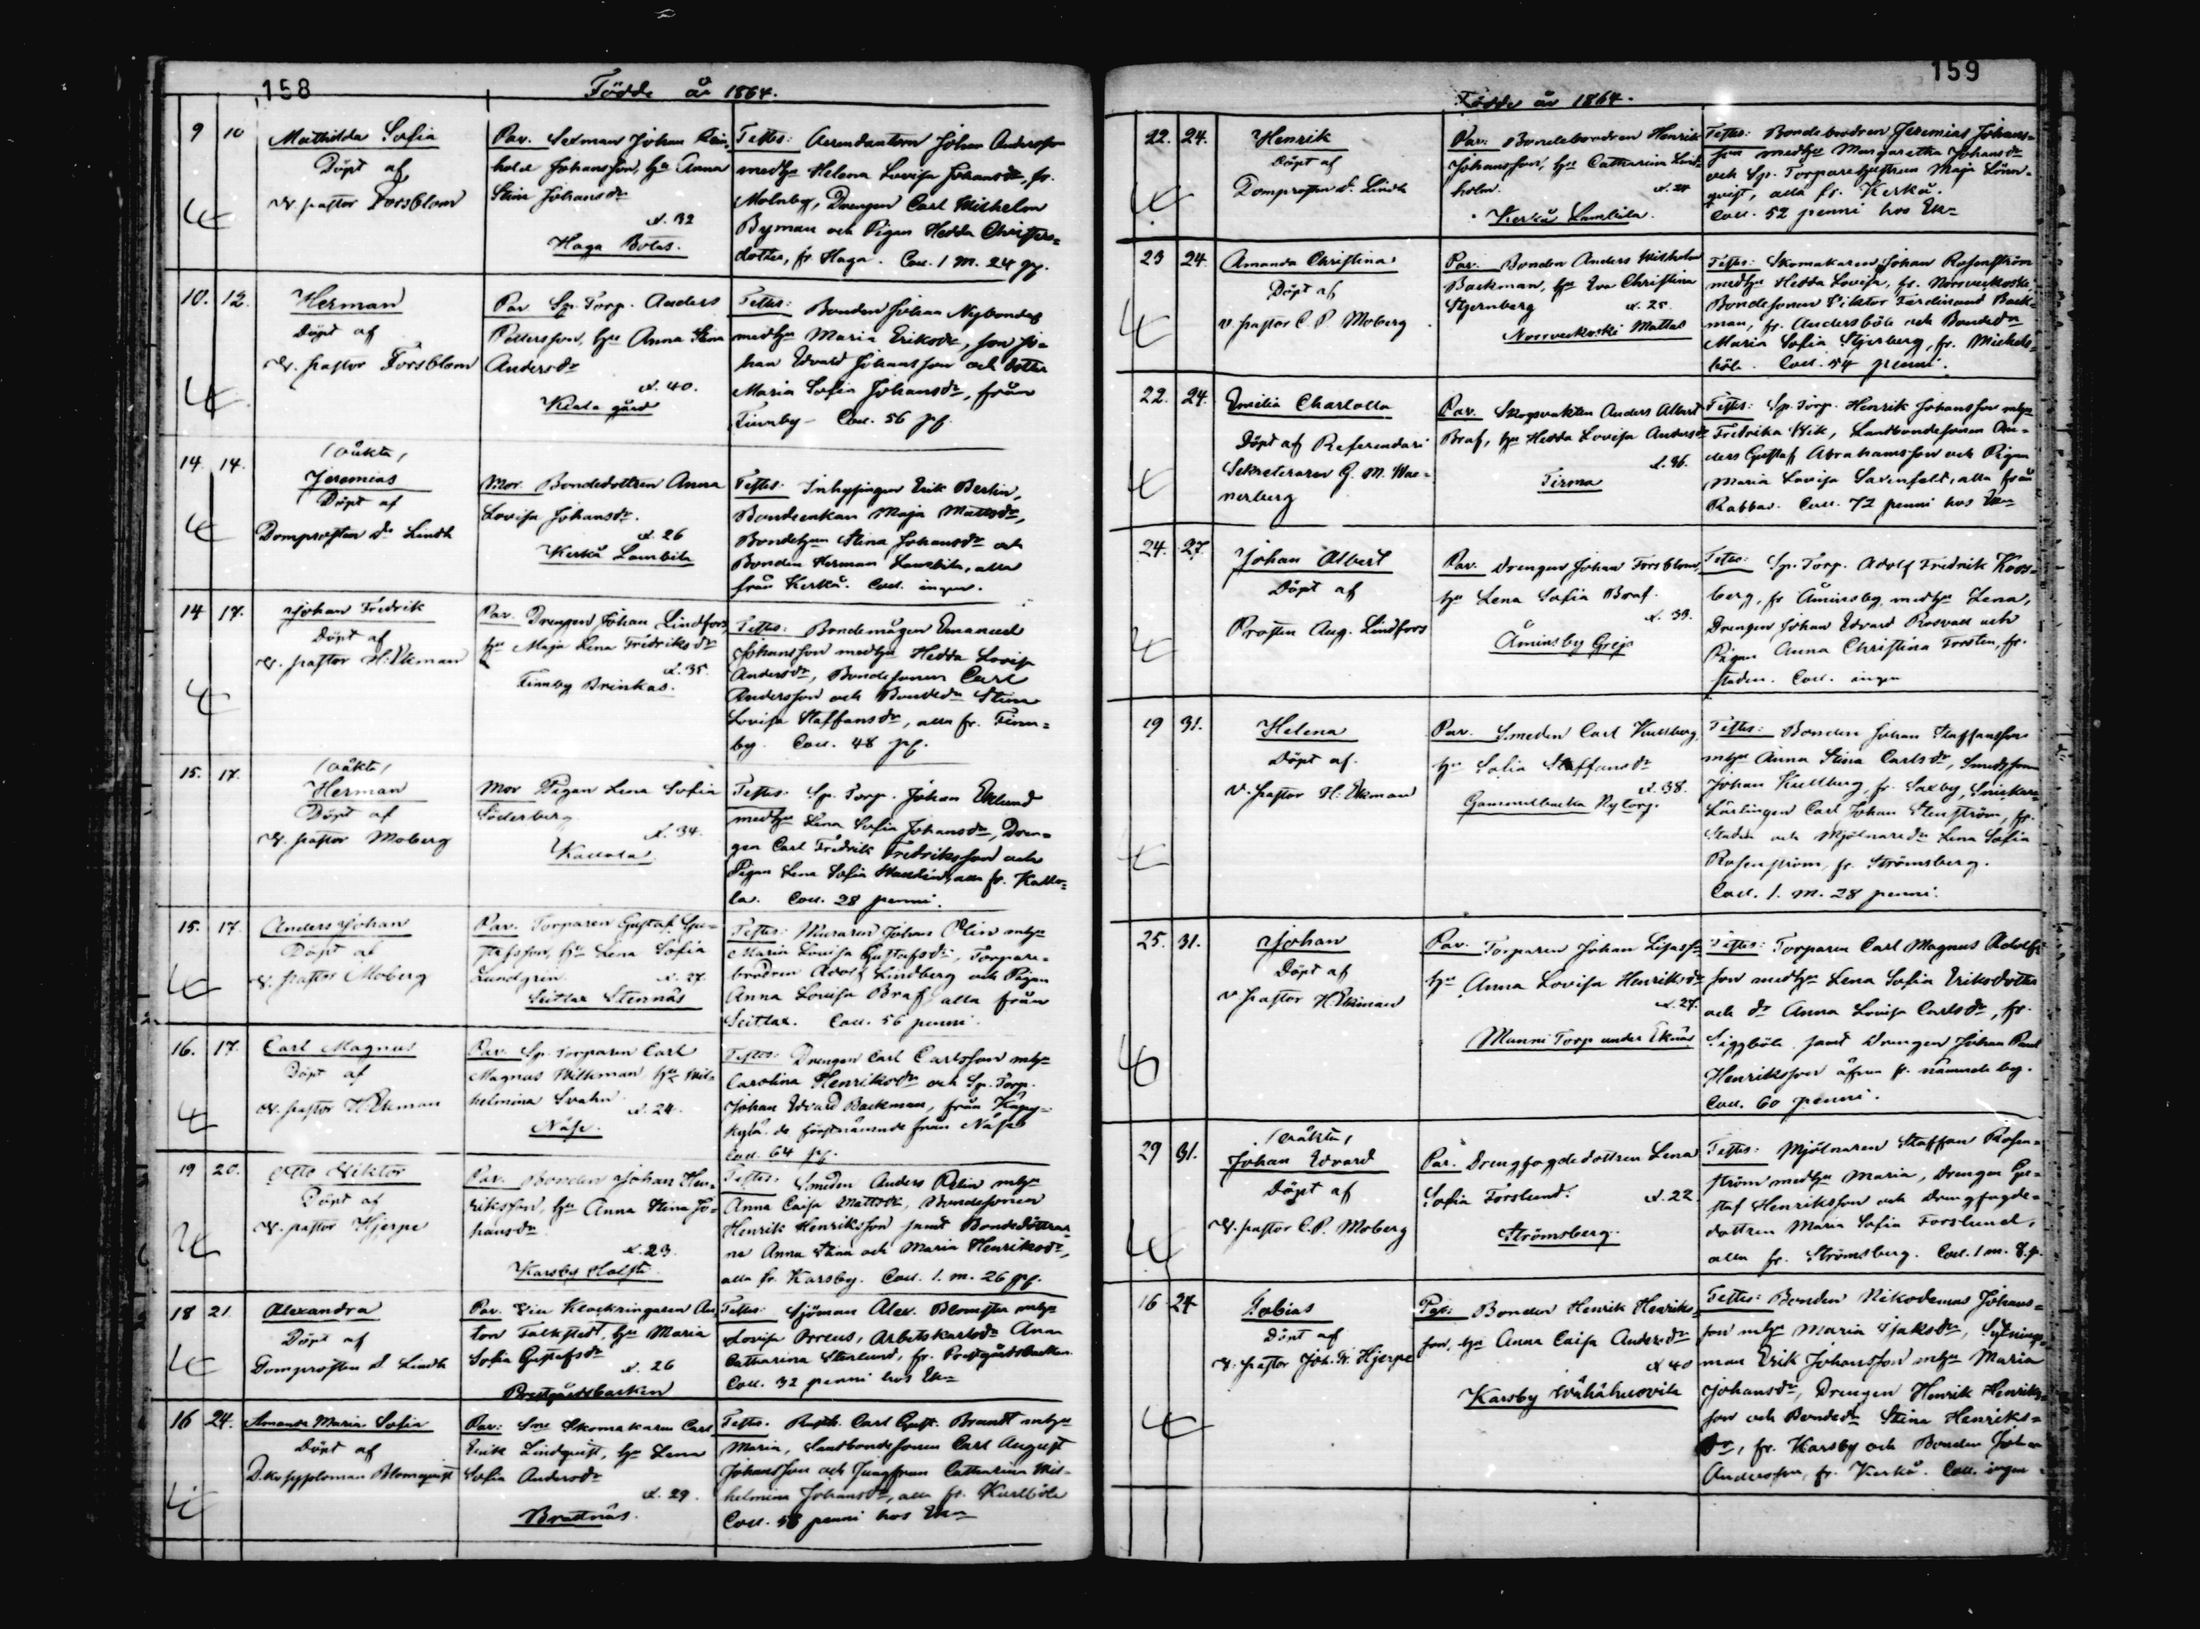 158
Födde år 1864.
9 10
Mathilda Sofia
Döpt af
v. pastor Forsblom
Par. Sexman Johan Rein-
hold Johansson, hu Anna
Stina Johansdr
å. 32
Haga Botas.
Testes: Arrendatorn Johan Andersson
med hu Helena Lovisa Johansdr, fr.
Molnby, Drengen Carl Wilhelm
Byman och Pigan Hedda Christers-
dotter, fr Haga. Coll. 1 m. 24 pf.
10. 12.
Herman
Döpt af
v. pastor Forsblom
Par Sp. Torp. Anders
Pettersson, hu Anna Stina
Andersdr
å. 40.
Kiala gård
Testes: Bonden Johan Nybondas
med hu Maria Eriksdr, son Jo-
han Edvard Johansson och dotter
Maria Sofia Johansdr, från
Finnby - Coll. 56 pf.
14. 14.
(oäkta)
Jeremias
Döpt af
Domprosten dr Lindh
Mor. Bondedottren Anna
Lovisa Johansdr.
å. 26
Kerkå Lambila
Testes: Inhysingen Erik Berlin,
Bondeenkan Maja Mattsdr,
Bondehun Stina Johansdr och
Bonden Herman Lambila, alla
från Kerkå. Coll. ingen.
14 17.
Johan Fredrik
Döpt af
v. pastor H. Ekman
Par. Drengen Johan Lindfors,
hu Maja Lena Fredriksdr
å. 35.
Finnby Brinkas.
Testes: Bondemågen Emanuel
Johansson med hu Hedda Lovisa
Andersdr, Bondesonen Carl
Andersson och Bondedr Stina
Lovisa Staffansdr, alla fr. Finn-
by. Coll. 48 pf.
15. 17.
(oäkta)
Herman
Döpt af
v. pastor Moberg
Mor Pigan Lena Sofia
Söderberg
å. 34.
Kallola
Testes: Sp. Torp. Johan Eklund
med hu Lena Sofia Johansdr, Dren-
gen Carl Fredrik Fredriksson och
Pigan Lena Sofia alla fr. Kallo-
la. Coll. 28 penni.
15. 17.
Anders Johan
Döpt af
v. pastor Moberg
Par. Torparen Gustaf Gu-
stafsson, hu Lena Sofia
Lundgren å. 27.
Seitlax Stennäs
Testes: Muraren Johan Olin m hu
Maria Lovisa Gustafsdr, Torpare-
brodren Adolf Lindberg och Pigan
Anna Lovisa Braf, alla från
Seitlax. Coll. 56 penni.
16. 17.
Carl Magnus
Döpt af
v. pastor H Ekman
Par. Sp. Torparen Carl
Magnus Wilkman hu Wil-
helmina Svahn
å. 24.
Näse.
Testes: Drengen Carl Carlsson m hu
Carolina Henriksdr och Sp. Torp.
Johan Edvard Backman, från
de förstnämnde från Näse
Coll. 64 pf.
19 20.
Otto Viktor
Döpt af
v. pastor Hjerpe
Par. Bonden Johan Hen-
riksson, hu Anna Stina Jo-
hansdr
å. 23.
Karsby Holsti.
Testes: Smeden Anders Relin m hu
Anna Caisa Mattsdr, Bondesonen
Henrik Henriksson samt Bondedöttrar-
na Anna Stina och Maria Henriksdr,
alla fr. Karsby. Coll. 1. m. 26 pf.
18 21.
Alexandra
Döpt af
Domprosten d. Lindh
Par. Vice Klockringaren An-
ton Falkstedt, hu Maria
Sofia Gustafsdr
å. 26
Prestgårdsbacken
Testes: Sjöman Alex. Blomster m hu
Lovisa Orreus, Arbetskarlsdr Anna
Catharina Sterlund, fr. Prestgårdsbacken
Coll. 32 penni hos Ekn
16 24.
Amanda Maria Sofia
Döpt af
Blomqvist
Par: Skomakaren Carl
Erik Lindqvist, hu Lena
Sofia Andersdr
å. 29.
Brattnäs.
Testes. Carl Gust. Brandt m hu
Maria, Landbondesonen Carl August
Johansson och Jungfrun Catharina Wil-
helmina Johansdr, alla fr. Kullböle
Coll. 58 penni hos Ekn
159
Födde år 1864.
22. 24.
Henrik
Döpt af
Domprosten d. Lindh
Par: Bondebrodren Henrik
Johansson, hu Catharina Lind-
holm. å. 24
Kerkå Lambila.
Testes: Bondebrodren Jeremias Johans-
son med hu Margaretha Johansdr
och Sp. Torparehustrun Maja Lönn-
qvist, alla fr. Kerkå.
Coll. 52 penni hos Ekn
23 24
Amanda Christina
Döpt af
v. pastor C. P. Moberg
Par. Bonden Anders Wilhelm
Backman, hu Eva Christina
Stjernberg å. 25.
Norrveckoski Mattas
Testes: Skomakaren Johan Rosenström
med hu Hedda Lovisa, fr. Norrveckoski,
Bondesonen Viktor Ferdinand Back-
man, fr. Andersböle och Bondedr
Maria Sofia Stjernberg, fr. Michels-
böle. Coll. 54 penni.
22. 24.
Emilia Charlotta
Döpt af Referendarie
Sekreteraren G. M. Wae-
nerberg
Par. Skogsvakten Anders Albert
Braf, hu Hedda Lovisa Andersdr
å. 36.
Tirmo
Testes: Sp. Torp. Henrik Johansson m hu
Fredrika Wik, Landbondesonen An-
ders Gustaf Abrahamsson och Pigan
Maria Lovisa Savenfelt, alla från
Rabbas. Coll. 72 penni hos Ekn
24. 27.
Johan Albert
Döpt af
Prosten Aug. Lindfors
Par. Drengen Johan Forsblom,
hu Lena Sofia Braf.
å. 33.
Äminsby Grejs
Testes: Sp. Torp. Adolf Fredrik Kors-
berg, fr Äminsby, med hu Lena,
Drengen Johan Edvard Rosvall och
Pigan Anna Christina Forsten, fr.
staden. Coll. ingen
19 31.
Helena
Döpt af.
v. pastor H. Ekman
Par. Smeden Carl Kullberg,
hu Sofia Staffansdr
å. 38.
Gammelbacka Nytorp.
Testes: Bonden Johan Staffansson
m hu Anna Stina Carlsdr, Smedsson
Johan Kullberg, fr. Saxby, Snickare-
Lärlingen Carl Johan Stenström, fr.
Staden och Mjölnaredr Lena Sofia
Rosenström, fr. Strömsberg.
Coll. 1. m. 28 penni.
25. 31.
Johan
Döpt af
v pastor H. Ekman
Par. Torparen Johan
hu Anna Lovisa Henriksdr
å. 27.
Munni Torp under Eknäs
Testes: Torparen Carl Magnus Adolfs-
son med hu Lena Sofia Eriksdotter
och dr Anna Lovisa Carlsdr, fr.
Siggböle samt Drengen Johan Paul
Henriksson äfven fr. nämnde by.
Coll. 60 penni.
29 31.
(oäkta)
Johan Edvard
Döpt af
v. pastor C. P. Moberg
Par. Drengfogdedottren Lena
Sofia Forslund. å. 22
Strömsberg.
Testes: Mjölnaren Staffan Rosen-
ström med hu Maria, Drengen Gu-
staf Henriksson och Drengfogde-
dottren Maria Sofia Forslund,
alla fr. Strömsberg. Coll. 1 m. 8. p.
16 24
Tobias
Döpt af
v. pastor Joh. Fr. Hjerpe
Par: Bonden Henrik Henriks-
son, hu Anna Caisa Andersdr
å 40
Karsby Wähähuovila
Testes: Bonden Nikodemus Johans-
son m hu Maria Isaksdr, Sytnings-
man Erik Johansson m hu Maria
Johansdr, Drengen Henrik Henriks-
son och Bondedr Stina Henriks-
dr, fr. Karsby och Bonden Johan
Andersson, fr. Kerkå. Coll. ingen